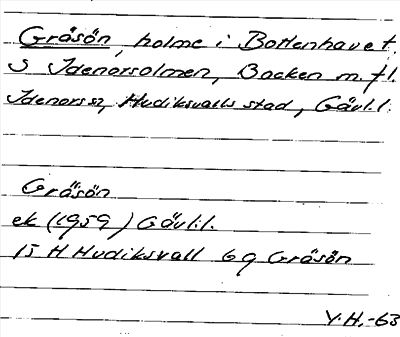 Gråsön, holme i Bottenhavet,
S Idenorsolmen, Backen m.fl.
Idenors sn, Hudiksvalls stad, Gävl.l.
Gråsön
ek (1959) Gävl.l.
15 H Hudiksvall 6 g Gråsön
Y.H.-63